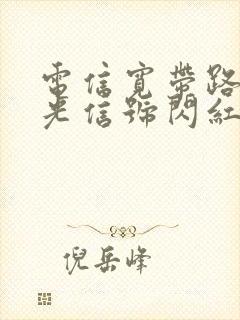 電信寬帶路
光信號閃紅
倪岳峰